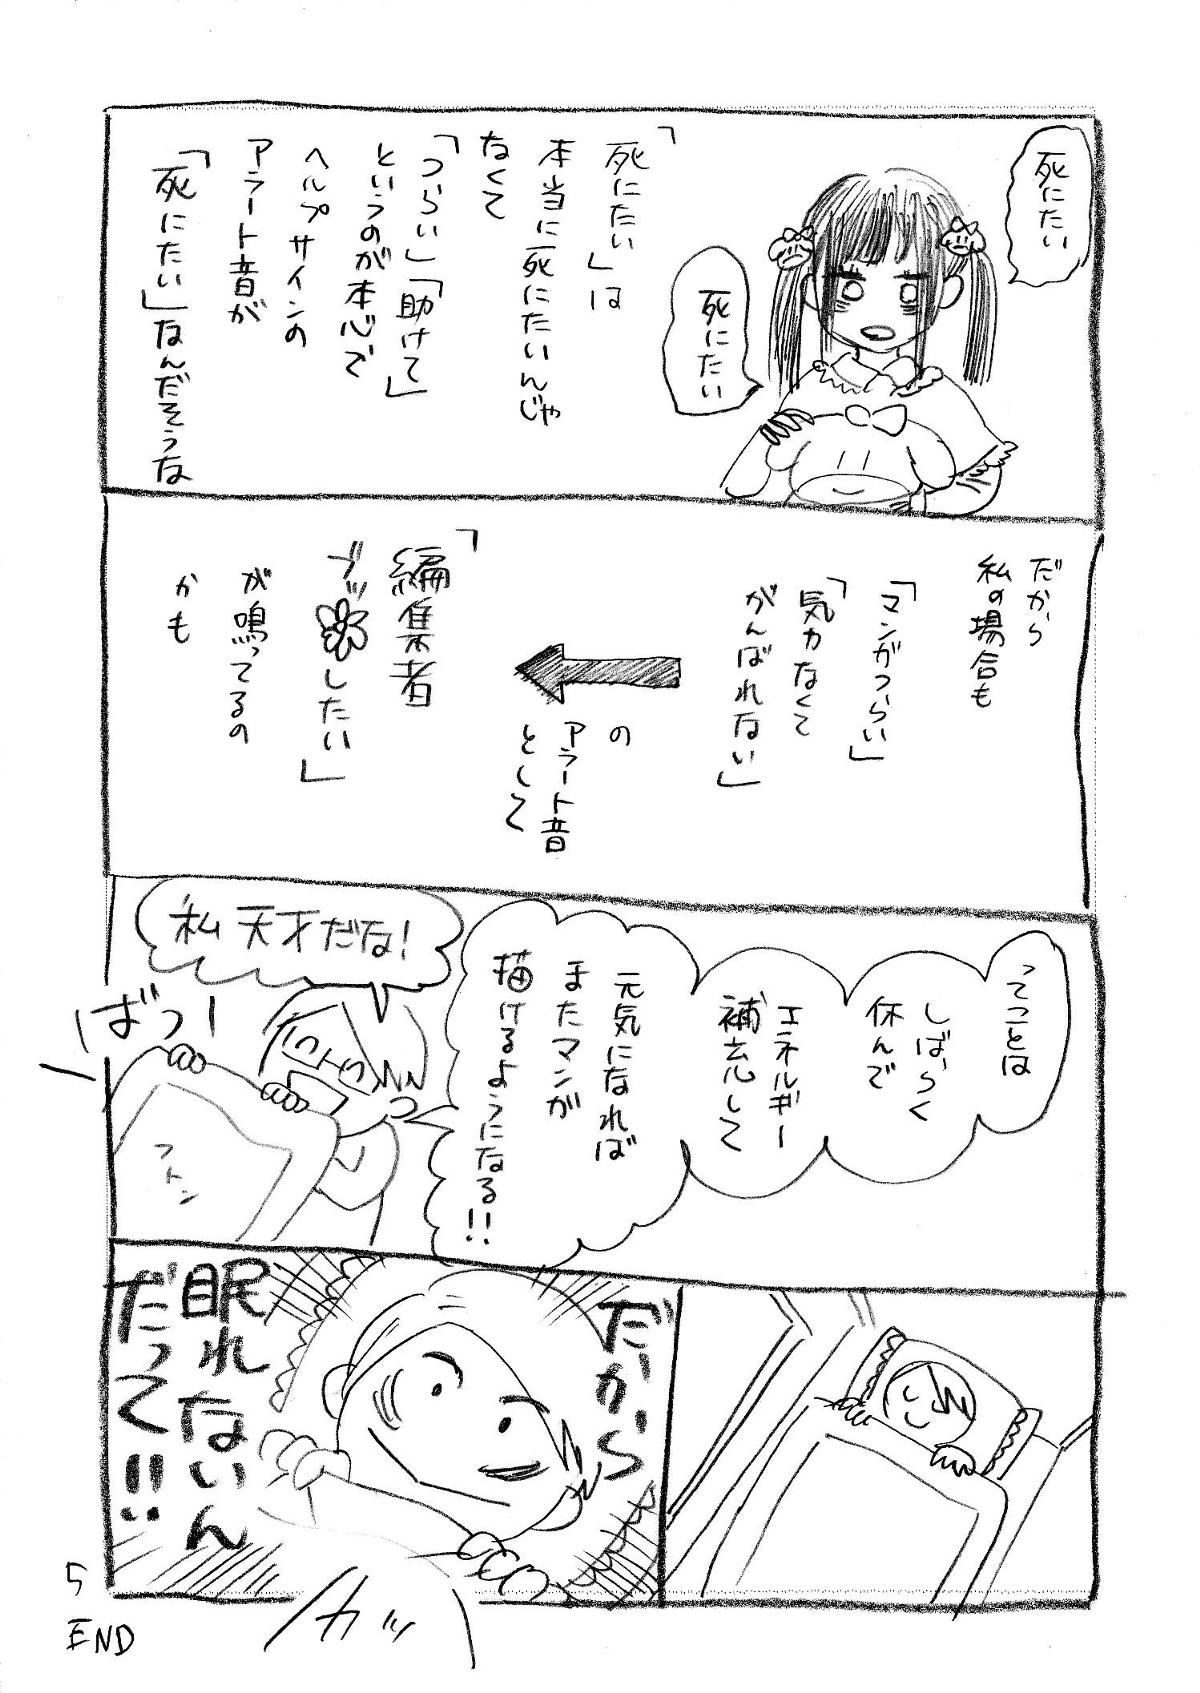 死にたい
死にたい
「死にたい」は
本当に死にたいんじゃ
なくて
「つらい」「助けて」
というのが本心で
ヘルプサインの
アラート音が
「死にたい」なんだそうな
だから
私の場合も
「マンガつらい」
「気力なくて
がんばれない」
の
アラート音
として
「編集者
ブッ したい」
が鳴ってるの
かも
ってことは
しばらく
休んで
エネルギー
補充して
元気になれば
またマンガが
描けるようになる!!
私天才だな!
ばっ
フトン
だから
眠れないん
だって!!
カッ
5
END